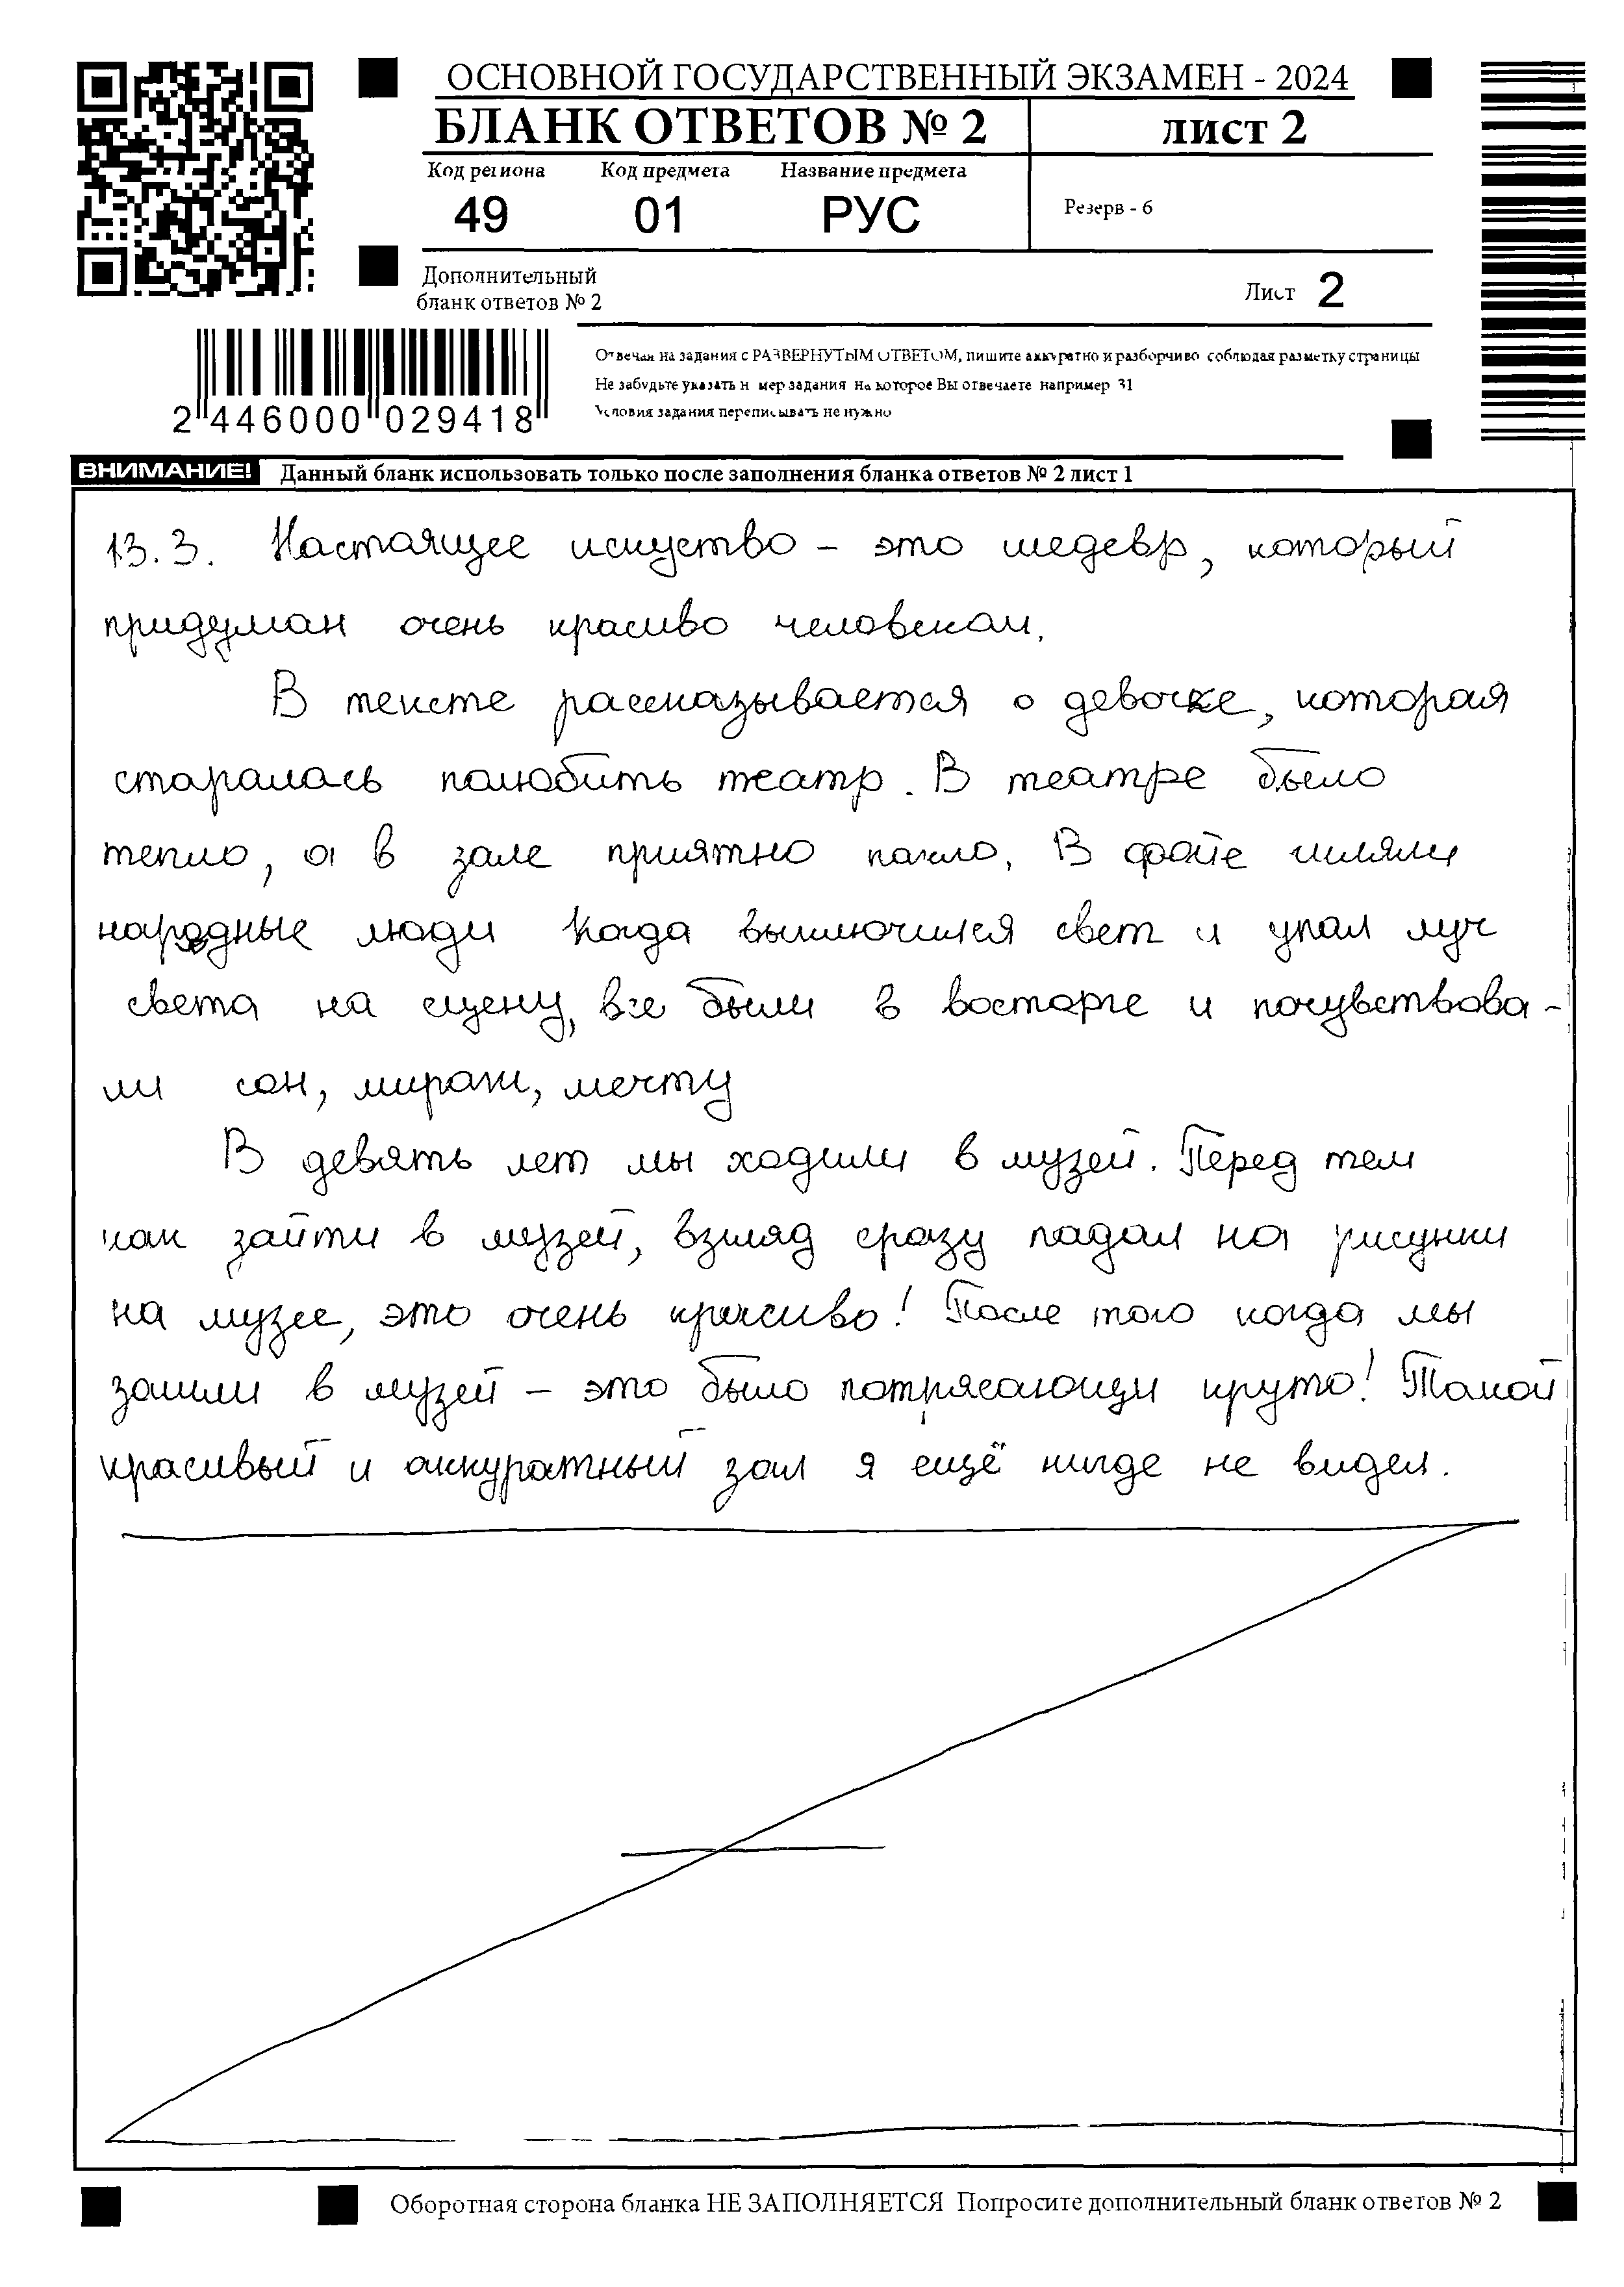 ОСНОВНОЙ ГОСУДАРСТВЕННЫЙ ЭКЗАМЕН - 2024
БЛАНК ОТВЕТОВ № 2 лист 2
Код региона Код предмета Название предмета
49 01 РУС Резерв - 6
Дополнительный
бланк ответов № 2
Лист 2
Отвечая на задания с РАЗВЕРНУТЫМ ОТВЕТОМ, пишите аккуратно и разборчиво соблюдая разметку страницы
Не забудьте указать н мер задания на которое Вы отвечаете например 31
Условия задания переписывать не нужно
2 446000 029418
ВНИМАНИЕ! Данный бланк использовать только после заполнения бланка ответов № 2 лист 1
13.3. Настоящее искуство – это шедевр, который
придуман очень красиво человеком.
В тексте рассказывается о девочке, которая
старалась полюбить театр. В театре было
тепло, а в зале приятно пахло. В фойе гиляли
народные люди Когда выключился свет и упал луч
света на сцену, все были в восторге и почувствова-
ли сон, мираж, мечту
В девять лет мы ходили в музей. Перед тем
как зайти в музей, взгляд сразу падал на рисунки
на музее, это очень красиво! После того когда мы
зашли в музей – это было потрясающи круто! Такой
красивый и аккуратный зал я ещё нигде не видел.
Оборотная сторона бланка НЕ ЗАПОЛНЯЕТСЯ Попросите дополнительный бланк ответов № 2